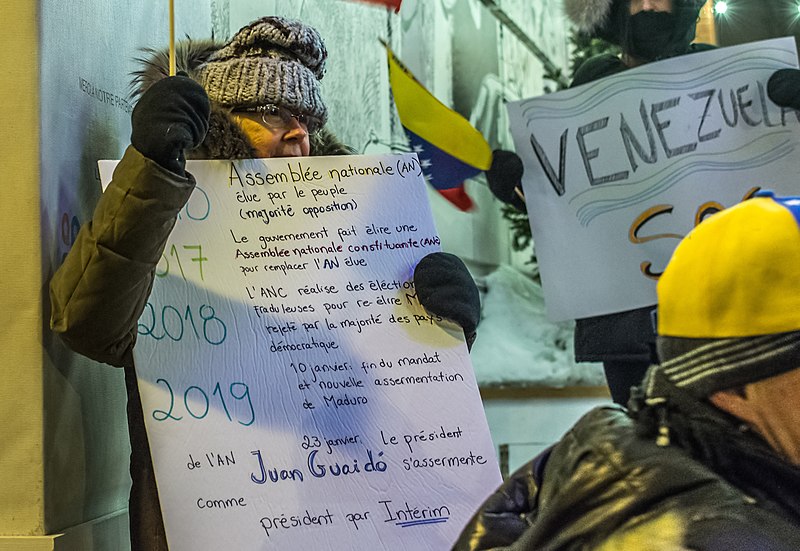 Assemblée nationale (AN)
élue par le peuple
(majorité opposition)
Le gouvernement fait élire une
17
Assemblée nationale constituante (ANC)
pour remplacer l'AN élue
L'ANC réalise des éléctions
2018
fraduleuses pour re-élire
rejeté par la majorité des pays
démocratique.
2019
10 janvier: fin du mandat
et nouvelle assermentation
de Maduro
23 janvier. Le président
de l'AN Juan Guaidó s'assermente
comme
président par Intérim
VENEZUELA